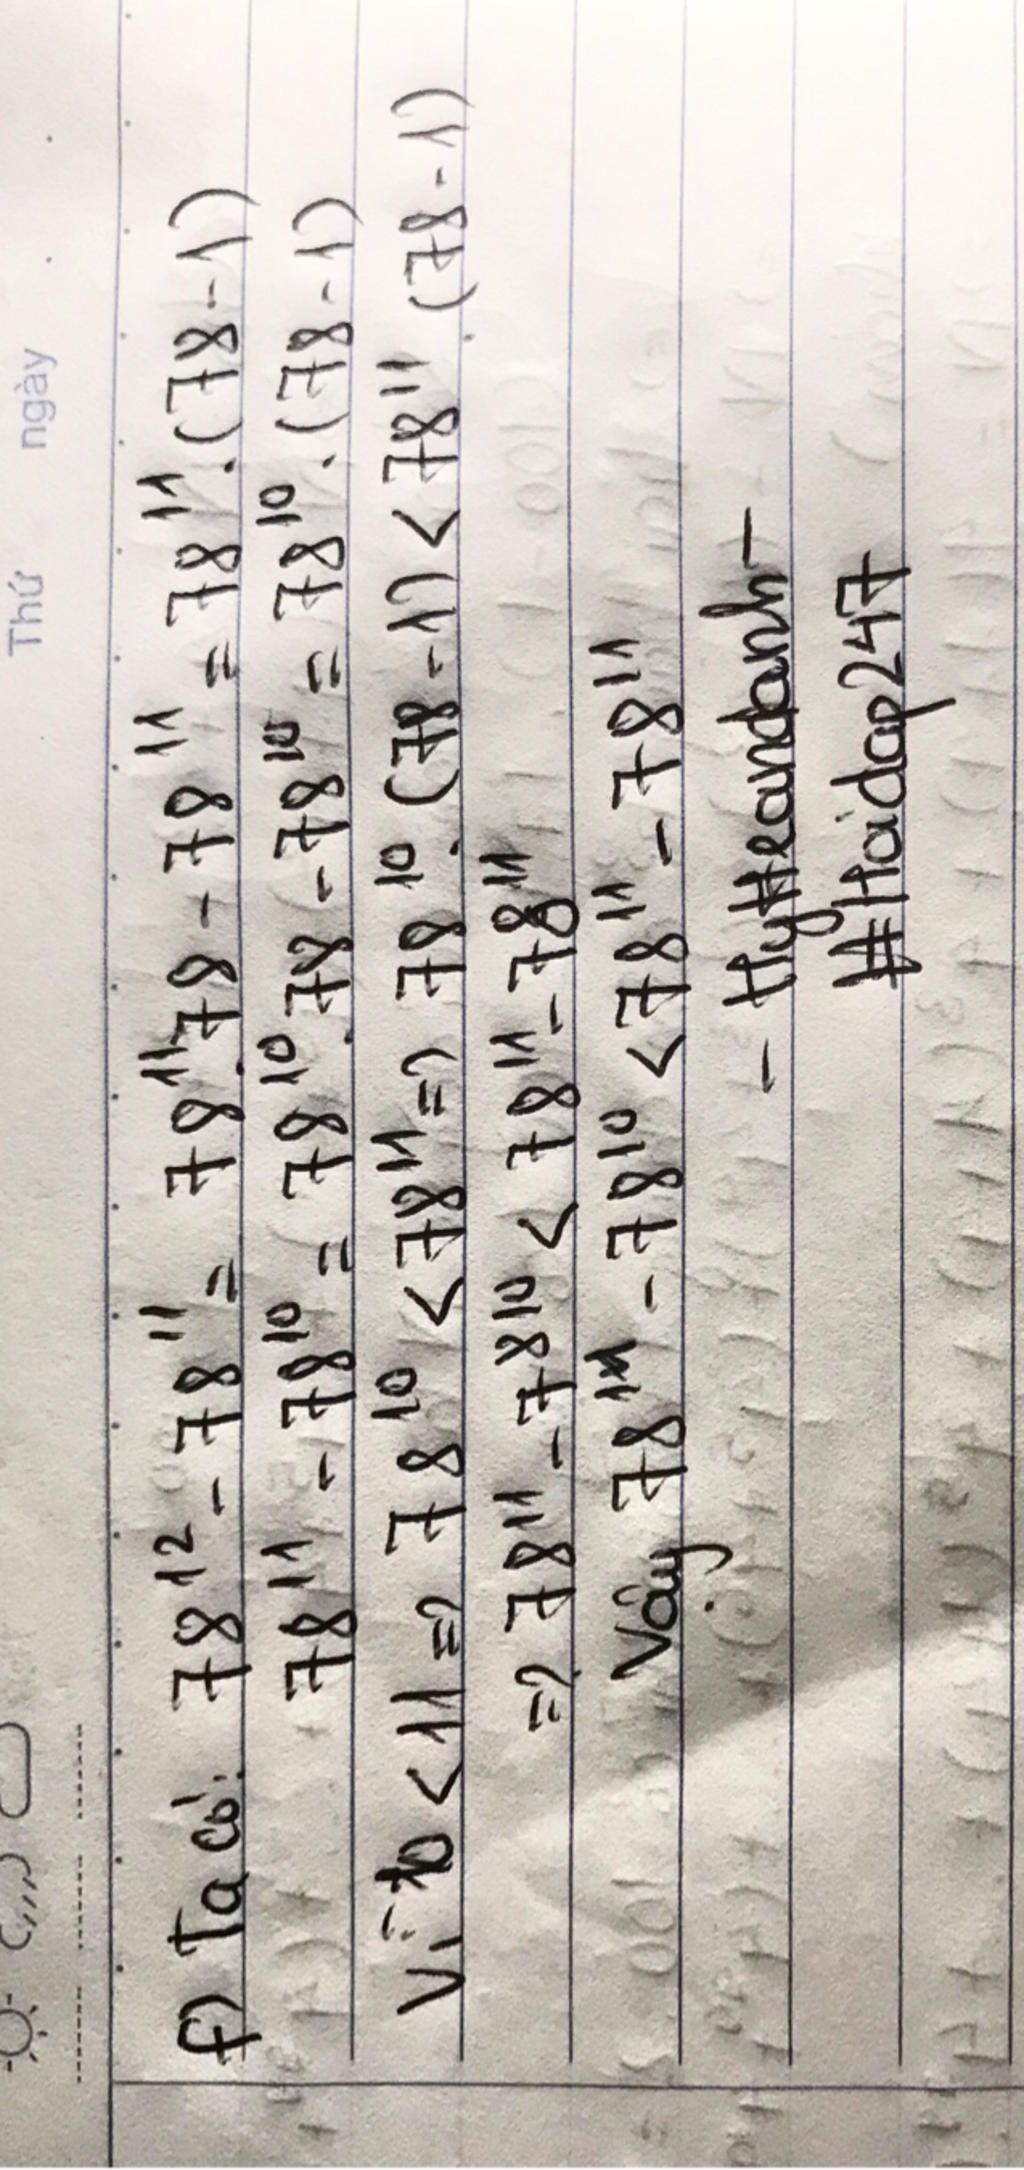 Thứ ngày
f) Ta có: 78¹² - 78¹¹ = 78¹¹.78 - 78¹¹ = 78¹¹.(78-1)
78¹¹ - 78¹⁰ = 78¹⁰.78 - 78¹⁰ = 78¹⁰.(78-1)
Vì 10 < 11 => 78¹⁰ < 78¹¹ => 78¹⁰.(78-1) < 78¹¹.(78-1)
=> 78¹¹ - 78¹⁰ < 78¹¹ - 78¹¹
Vậy 78¹¹ - 78¹⁰ < 78¹¹ - 78¹¹
- HyHeandanh -
#Hoidap247